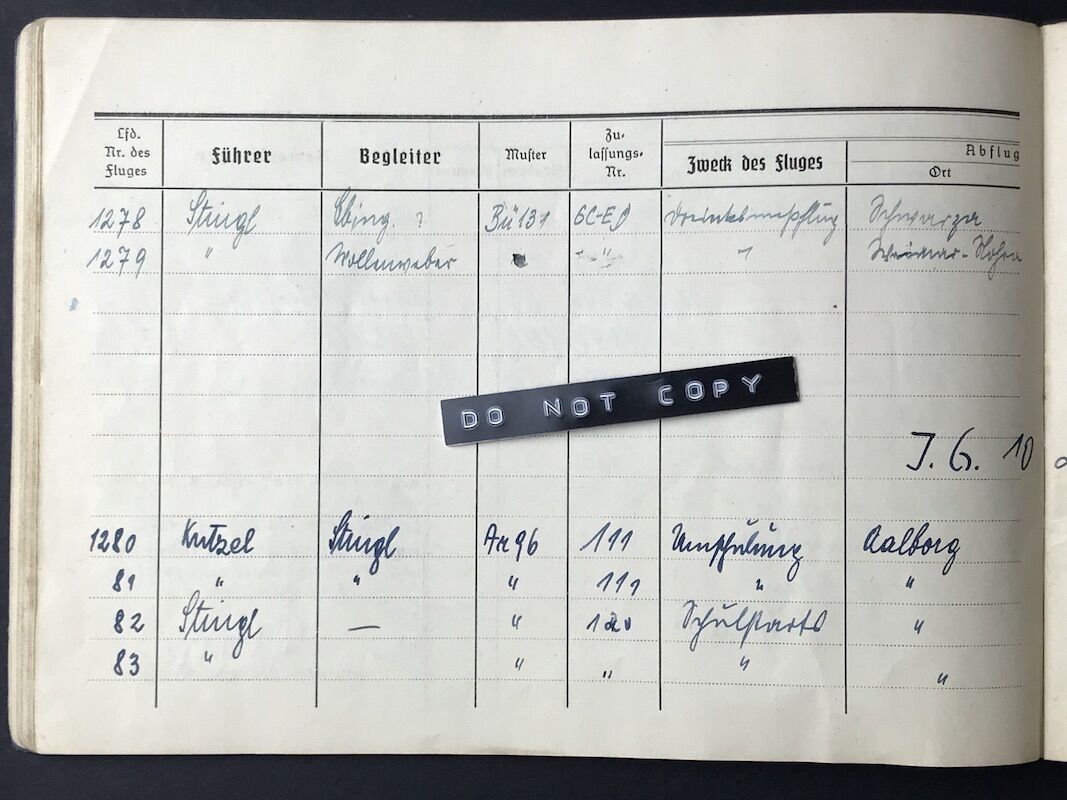 Lfd. Nr. des Fluges Führer Begleiter Muster Zulassungs-Nr. Zweck des Fluges Abflug Ort
1278 Stingl Ebing. ? Bü 131 Schwarza
1279 " Wollenweber " " Weimar-Nohra
DO NOT COPY
J. G. 10
1280 Kutzel Stingl Ar 96 111 Umschulung Aalborg
81 " " " 111 " "
82 Stingl — " 120 Schulstarts "
83 " " " " "